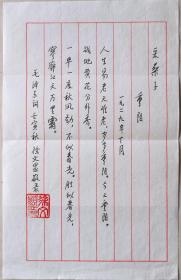 采桑子
重阳
一九二九年十月
人生易老天难老，岁岁重阳。今又重阳，
战地黄花分外香。
一年一度秋风劲，不似春光。胜似春光，
寥廓江天万里霜。
毛泽东词 壬寅秋 徐文
敬录